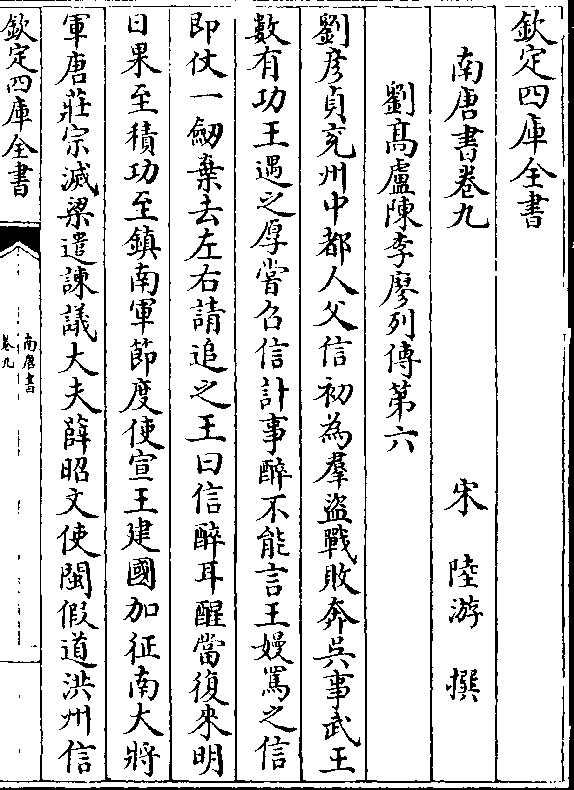 欽定四庫全書
南唐書卷九
宋 陸游 撰
劉高盧陳李廖列傳第六
劉彦貞兖州中都人父信初為羣盜戰敗奔吳事武王
數有功王遇之厚嘗召信計事醉不能言王嫚罵之信
即仗一劒棄去左右請追之王曰信醉耳醒當復來明
日果至積功至鎮南軍節度使宣王建國加征南大將
軍唐莊宗滅梁遣諫議大夫薛昭文使閩假道洪州信
欽定四庫全書
南唐書
卷九